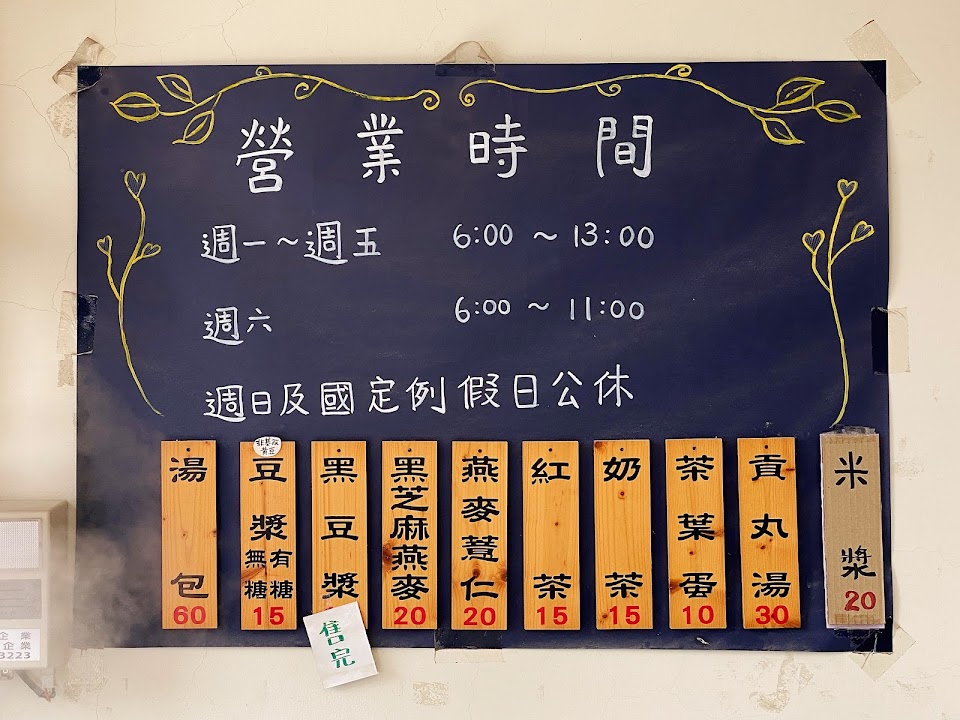 營業時間
週一～週五 6:00 ～ 13:00
週六 6:00 ～ 11:00
週日及國定例假日公休
湯包 60
非基改黃豆
豆漿 有糖 無糖 15
黑豆漿
售完
黑芝麻燕麥 20
燕麥薏仁 20
紅茶 15
奶茶 15
茶葉蛋 10
貢丸湯 30
米漿 20
企業
企業
3223